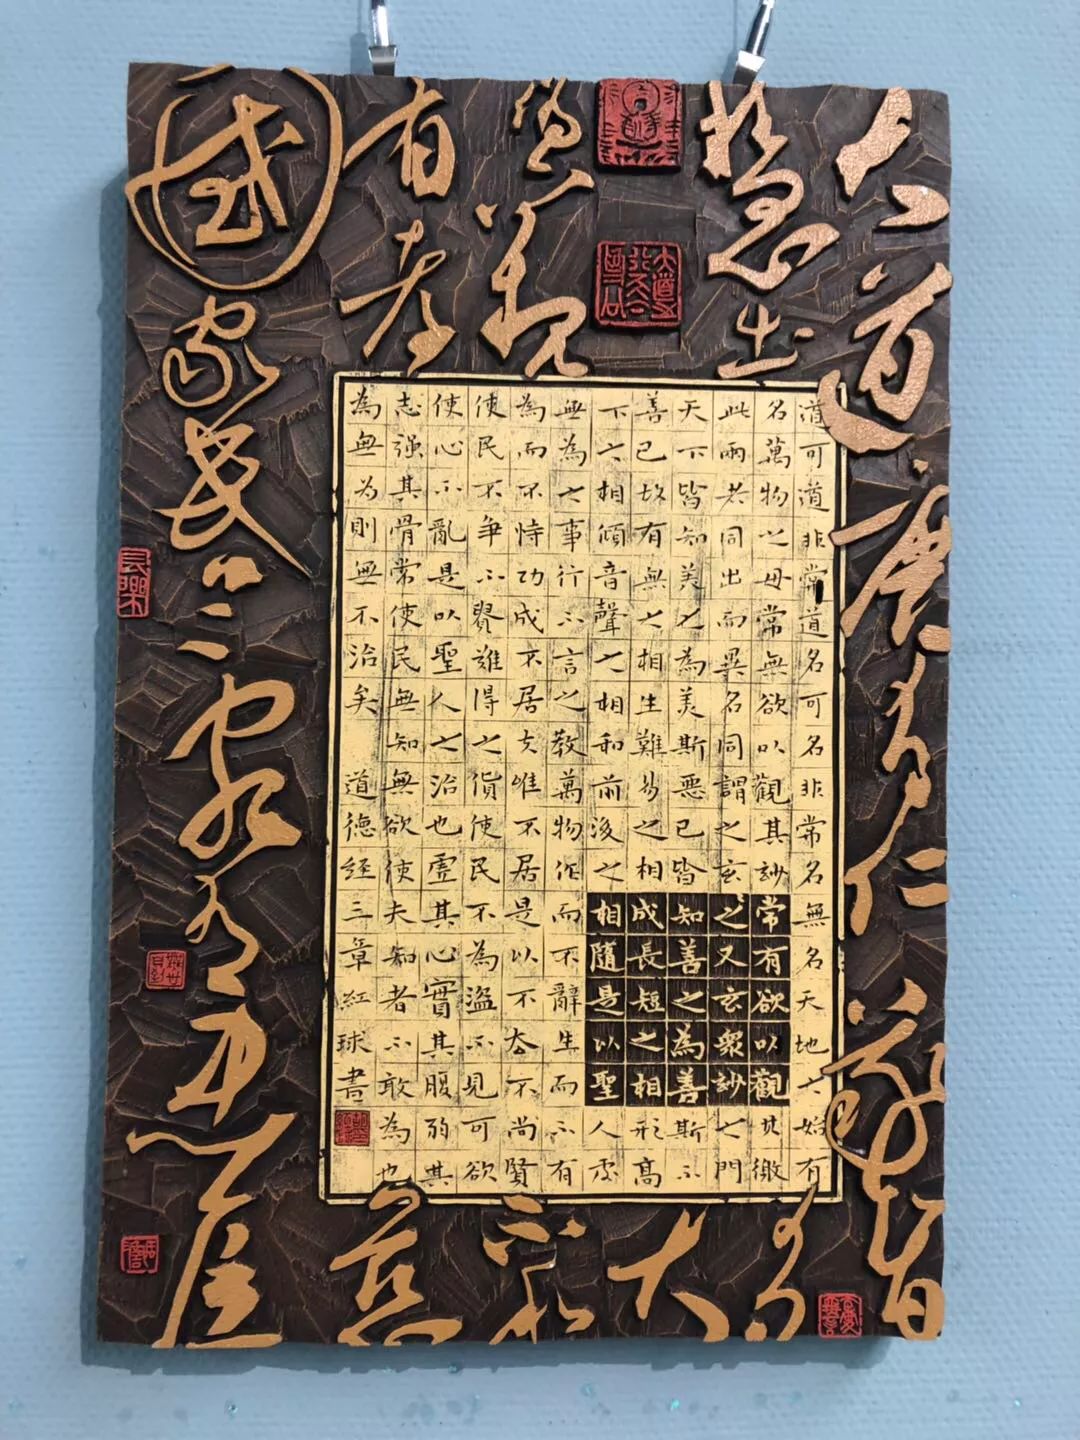 大道廢有仁義智
慧出
有大
偽六親
不和
有孝
慈
國家昏亂有忠臣
道可道非常道名可名非常名無名天地之始有
名萬物之母常無欲以觀其玅常有欲以觀其徼
此兩者同出而異名同謂之玄之又玄衆玅之門
天下皆知美之為美斯惡已皆知善之為善斯不
善已故有無之相生難易之相成長短之相形高
下之相傾音聲之相和前後之相隨是以聖人處
無為之事行不言之教萬物作而不辭生而不有
為而不恃功成不居夫唯不居是以不去不尚賢
使民不爭不貴難得之貨使民不為盜不見可欲
使心不亂是以聖人之治也虛其心實其腹弱其
志强其骨常使民無知無欲使夫知者不敢為也
為無為則無不治矣 道德經三章紅球書
長樂